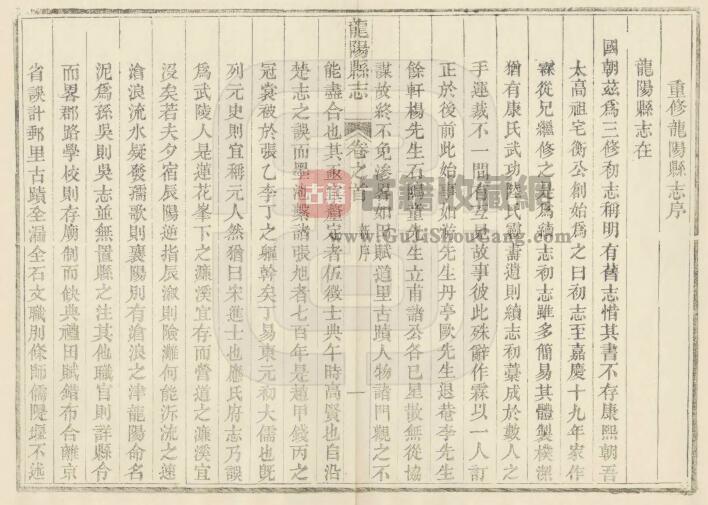 重修龍陽縣志序
龍陽縣志在
國朝茲為三修初志稱明有舊志惜其書不存康熙朝吾
太高祖宅衡公創始為之曰初志至嘉慶十九年家作
霖從兄繼修之是為續志初志雖多簡易其體製樸潔
猶有康氏武功陸氏靈壽遺則續志初藁成於數人之
手運裁不一間有互見故事彼此殊辭作霖以一人訂
正於後前此始事如 先生丹亭歐先生退菴李先生
餘軒楊先生石疇 先生立甫諸公各已星散無從協
謀故終不免滲畧如田賦道里古蹟人物諸門觀之不
龍陽縣志 卷之首 新序 一
能盡合也其 定者伍徵士典午時高賢也自沿
楚志之誤而墨池 諸張旭者七百年是趙甲錢丙之
冠裳被於張乙李丁之軀幹矣丁易東元初大儒也旣
列元史則宜稱元人然猶曰宋進士也應氏府志乃誤
為武陵人是蓮花峯下之濂溪宜存而營道之濂溪宜
沒矣若夫夕宿辰陽逆指辰漵則險灘何能泝流之速
滄浪流水疑發孺歌則襄陽別有滄浪之津龍陽命名
泥為孫吳則吳志並無置縣之注其他職官則詳縣令
而畧郡路學校則存廟制而缺典禮田賦錯布合離京
省誤計郵里古蹟全漏金石文職別條師儒隄堰不述
古籍收藏網
www.GuJiShouCang.com
古籍